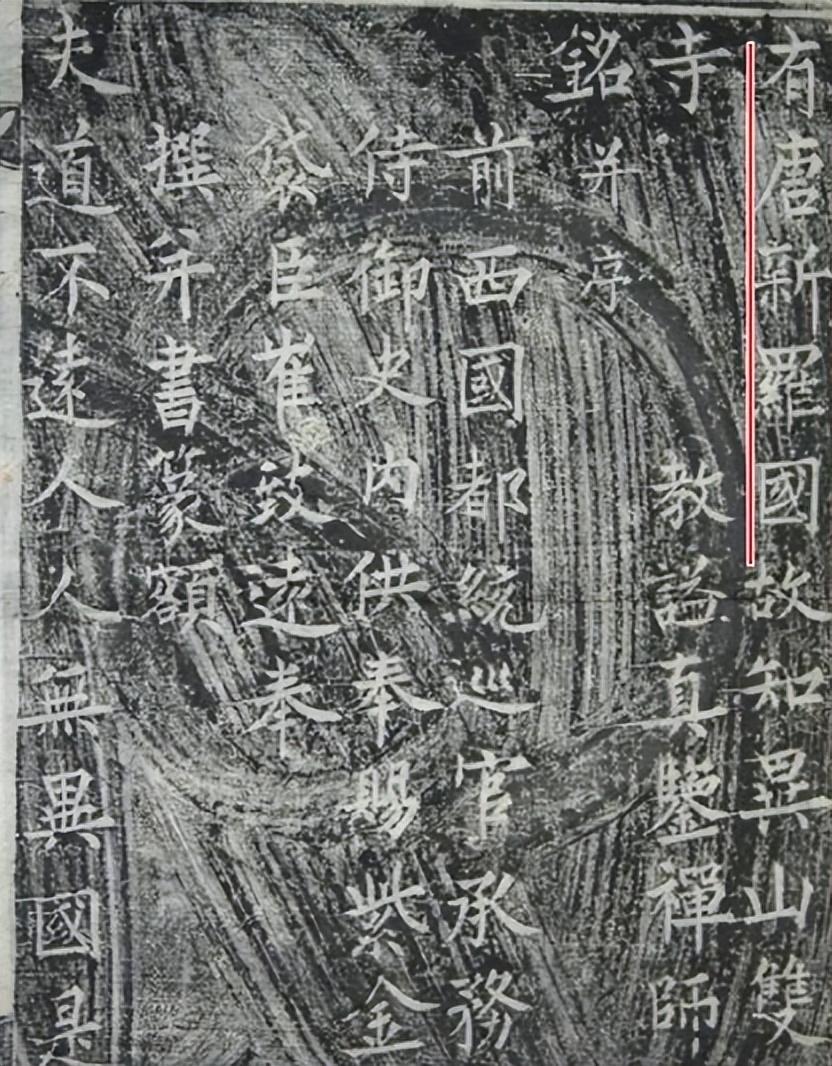 有唐新羅國故知異山雙
寺 教謚真鑒禪師
銘并序
前西國都統巡官承務
侍御史內供奉賜紫金
袋臣崔致遠奉
撰并書篆額
夫道不遠人人無異國是